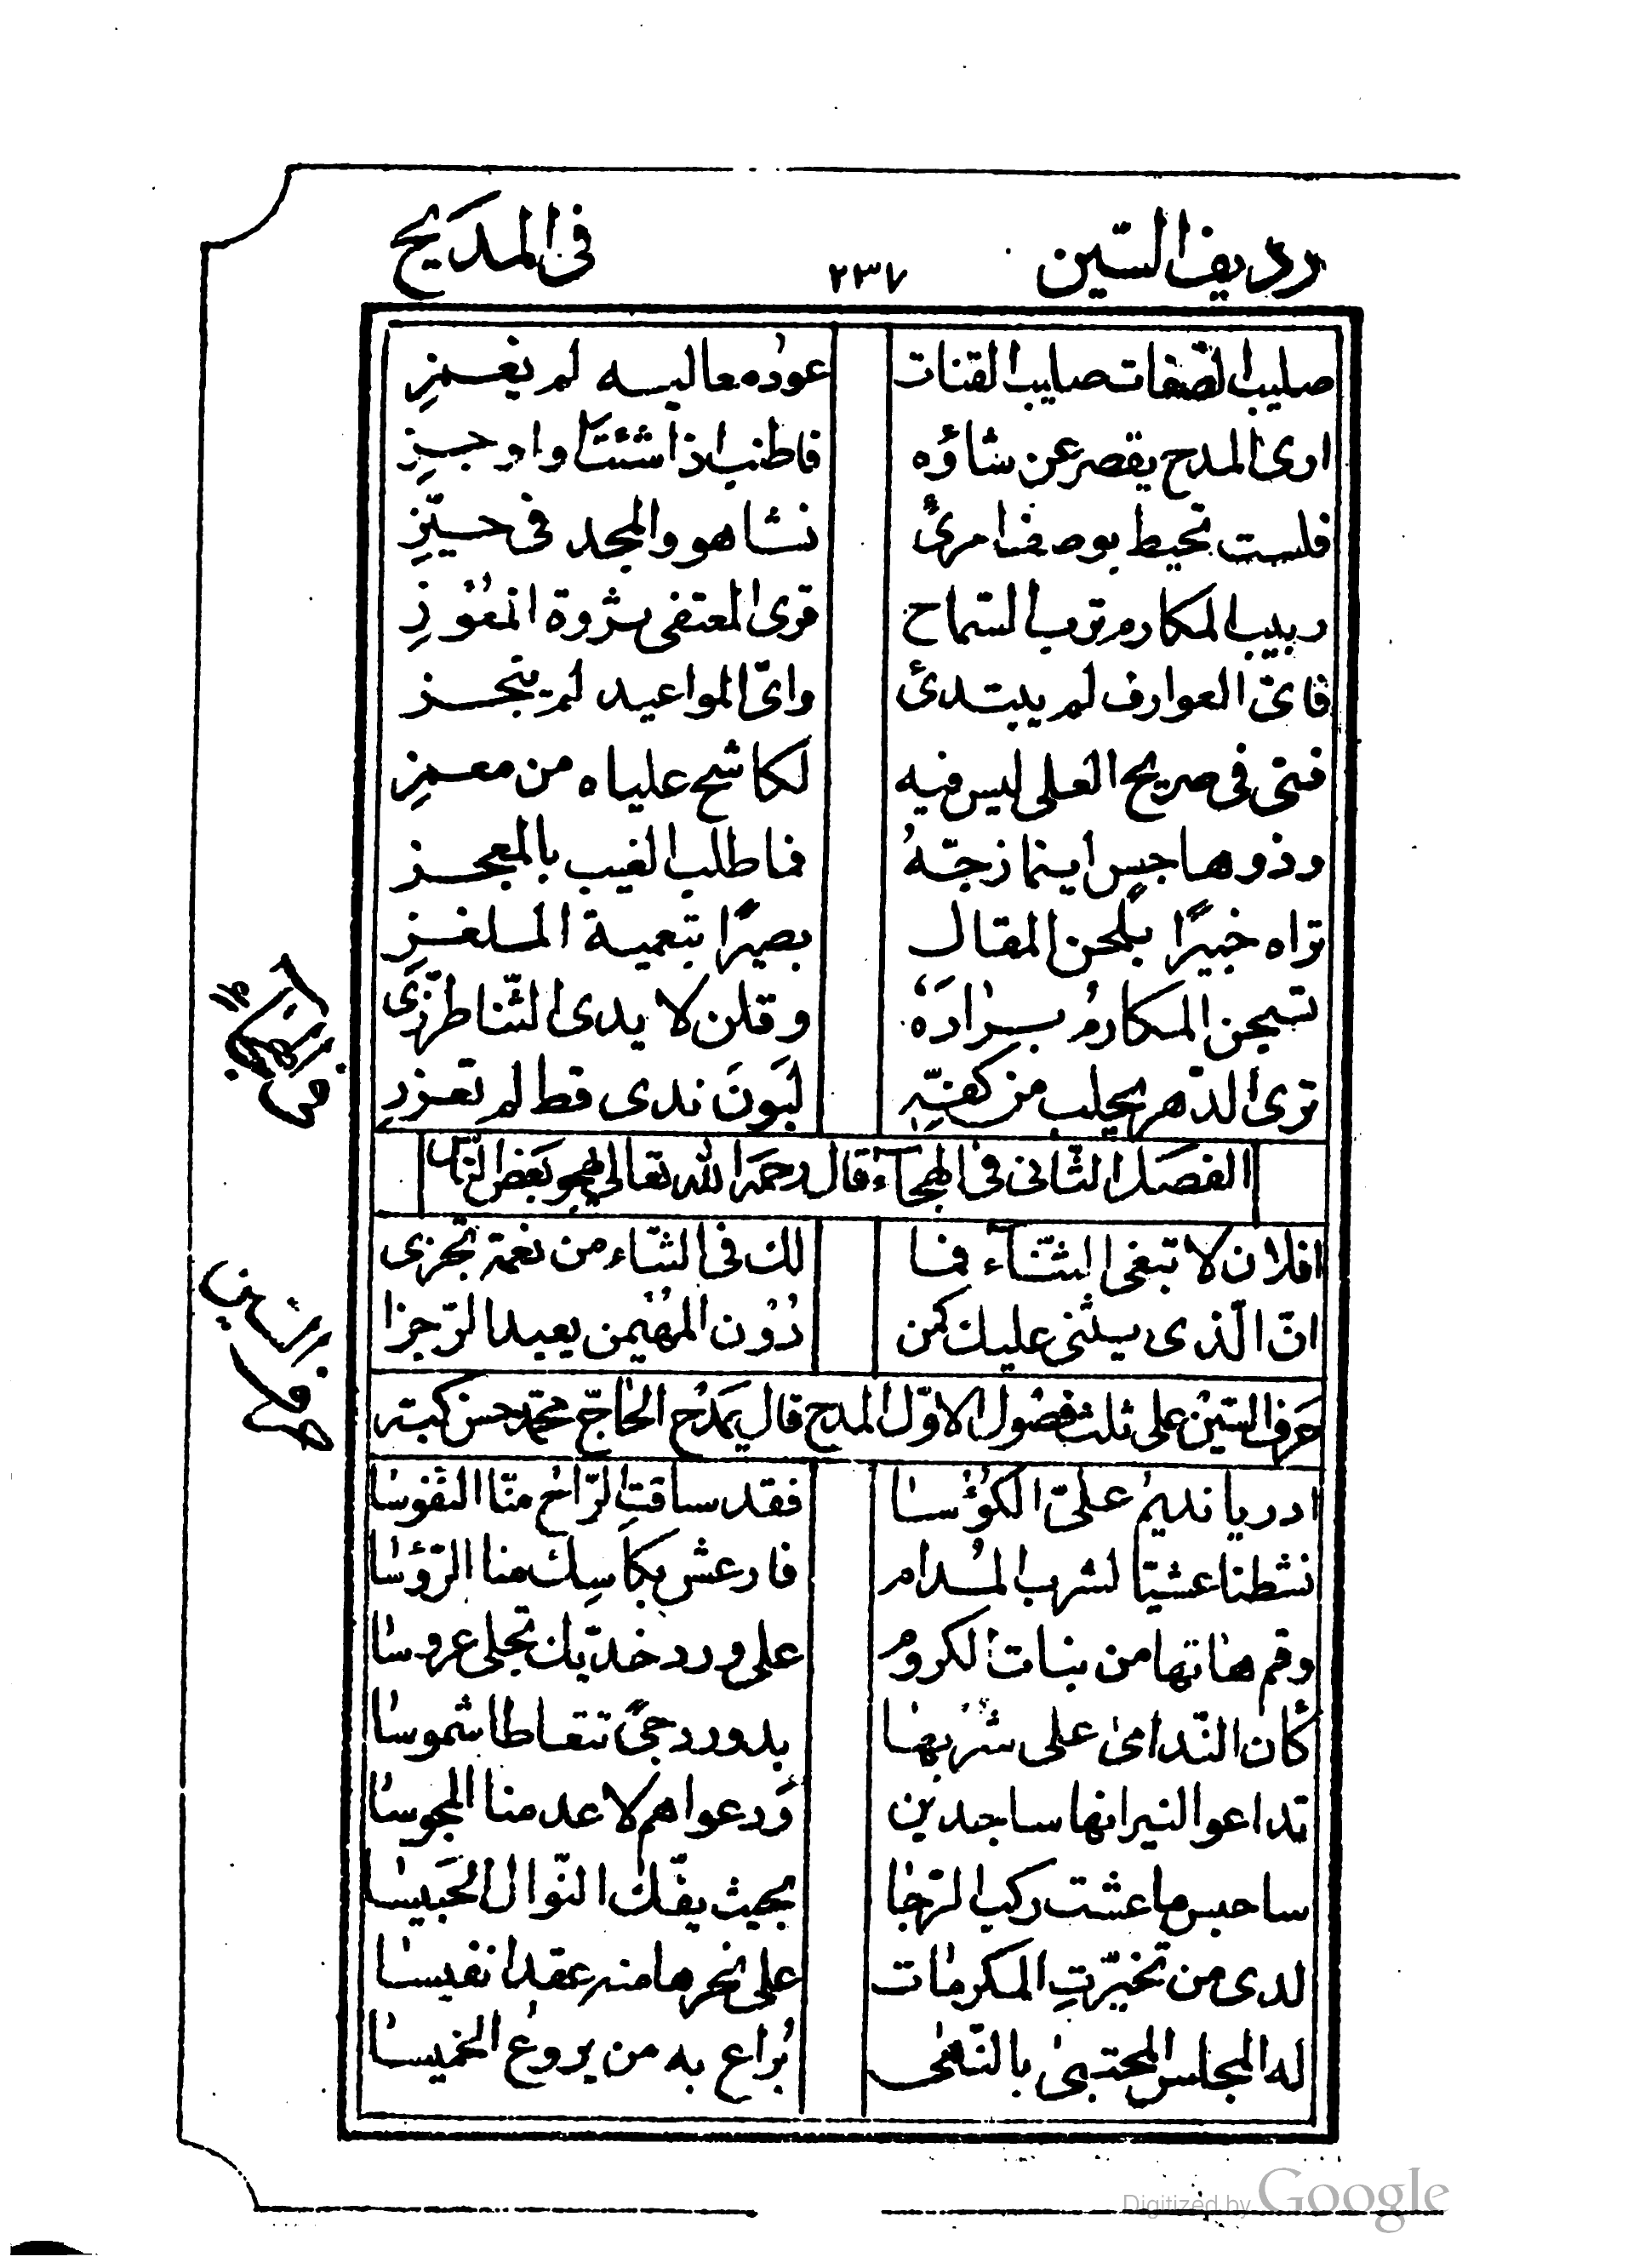 رديف السّين ٢٣٧ في المديح
صليب الصّفات صليب القنات عوده معاليه لم يغمز
ارى المدح يقصر عن شاؤه فاطنب اذا شئت او اوجز
فلست تحيط بوصف امرئ نشا هو والمجد في حيّز
ربيب المكارم ترب السّماح قرى المعتفى ثروة المعوز
فاىّ العوارف لم يبتدئ واىّ المواعيد لم ينجز
فتى في صريح العلى ليس فيه لكاشح علياه من مغمز
وذو هاجس اينما زجّه فما طلب الغيب بالمعجز
تراه خبيرًا بلحن المقال بصيرًا بتعمية الملغز
نسجن المكارمُ ابراده وقلن لايدى الثّنا طرّزى
ترى الدّهر يحلب من كفّه لبون ندى قط لم تعزز
الفصل الثّانى فى الهجآء قال رحمه الله تعالى يهجو بعض النّاس
افلان لا تبغى الثّنآء فما لك فى الثّناء من نعمة تجزى
انّ الّذى يثنى عليك كمن دون المهيمن يعبد الرّجزا
حرف السّين على ثلث فصول الاوّل المدح قال يمدح الحاجّ محمّد حسن كبّه
ادر يا نديمُ علىّ الكؤسا فقد ساقت الرّاح منّا النّفوسا
نشطنا عشيّا لشرب المدام فارعش بكاسك منا الرّؤسا
وقم هاتها من بنات الكروم على ورد خدّيك تجلى عروسا
كأن النّدامى على شربها بدور دجىً تتعاطا شموسا
تداعوا لنيرانها ساجدين ودعواهم لا عدمنا المجوسا
ساحبس ما عشت ركب الرّجا بحيث يفكّ النّوال الحبيسا
لدى من تخيّرت المكرمات على نحرها منه عقدا نفيسا
له المجلس المحتبى بالنّهى يُراع به من يروع الخميسا
فى الهجآء
حرف السين